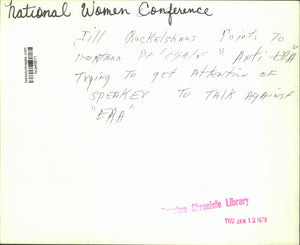 National Women Conference
Jill Ruckelshaus Points to
Montana Delegate "Anti ERA"
Trying to get Attention of
SPEAKER TO TALK AGAINST
"ERA"
Houston Chronicle Library
THU JAN 12 1978